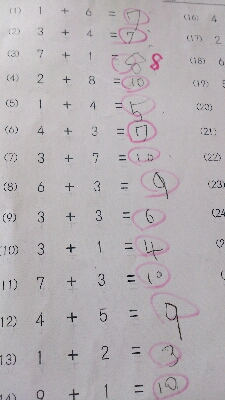 (1) 1 + 6 = 7 (16) 4
(2) 3 + 4 = 7 (17) 2
(3) 7 + 1 = 8 8 (18) 6
(4) 2 + 8 = 10 (19)
(5) 1 + 4 = 5 (20)
(6) 4 + 3 = 7 (21)
(7) 3 + 7 = 10 (22)
(8) 6 + 3 = 9 (23)
(9) 3 + 3 = 6
(10) 3 + 1 = 4
(11) 7 + 3 = 10
(12) 4 + 5 = 9
(13) 1 + 2 = 3
(14) 9 + 1 = 10